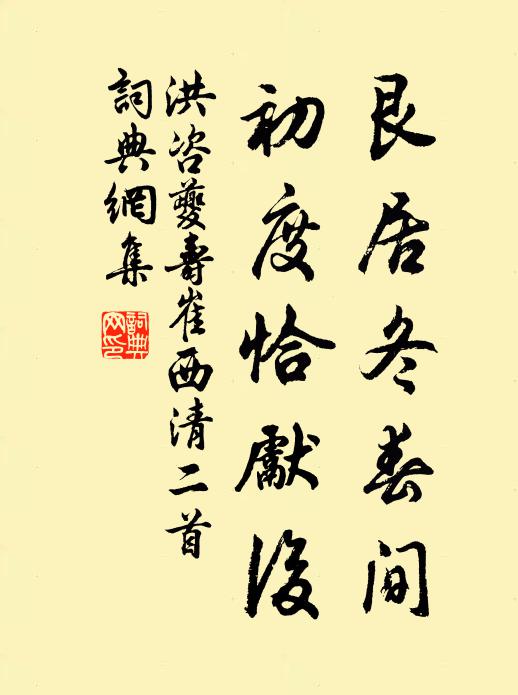 艮居冬春间
初度恰献后
洪咨夔寿崔西清二首
词典网集
词典网印